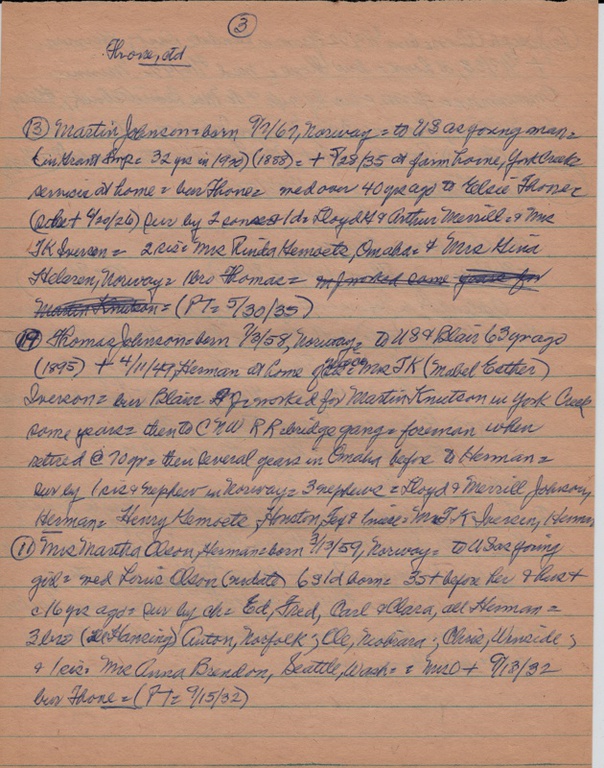 (3)
Thone, ctd
(13) Martin Johnson = born 9/7/67, Norway = to US as young man =
(in Grant Twp = 32 yrs in 1920) (1888) = + 5/28/35 at farm home, York Creek
services at home = bur Thone = med over 40 yrs ago to Elsie Thones
(+ 4/20/26) sur by 2 sons & 1d = Lloyd H & Arthur Merrill = & Mrs
TK Iverson = 2 sis = Mrs Rinda Hemoets, Omaha = & Mrs Gina
Norway = 1 bro Thomas =
Martin Knutson = (PT = 5/30/35)
(14) Thomas Johnson = born 7/3/58, Norway = to US & Blair 63 yr ago
(1895) + 4/11/49, Herman at home of niece = Mrs TK (Mabel Esther)
Iverson = bur Blair = worked for Martin Knutson in York Creek
some years = then to CNW RR bridge gang = foreman when
retired @ 70 yr = then several years in Omaha before to Herman =
sur by 1 sis & nephew in Norway = 3 nephews = Lloyd & Merrill Johnson,
Herman = Henry Hemoets, Houston, Tex & 1 niece = Mrs TK Iverson, Herman
(11) Mrs Martha Olson, Herman = born 3/13/59, Norway = to US as young
girl = med Louis Olson (nodate) 6s 1d born = 3s + before her & hus +
c 16 yrs ago = sur by ch = Ed, Fred, Carl & Clara, all Herman =
3 bro (Hansing) Anton, Norfolk; Ole, Niobrara; Chris, Winside;
& 1 sis. Mrs Anna Brendon, Seattle, Wash = = Mrs O + 9/13/32
bur Thone = (PT = 9/15/32)